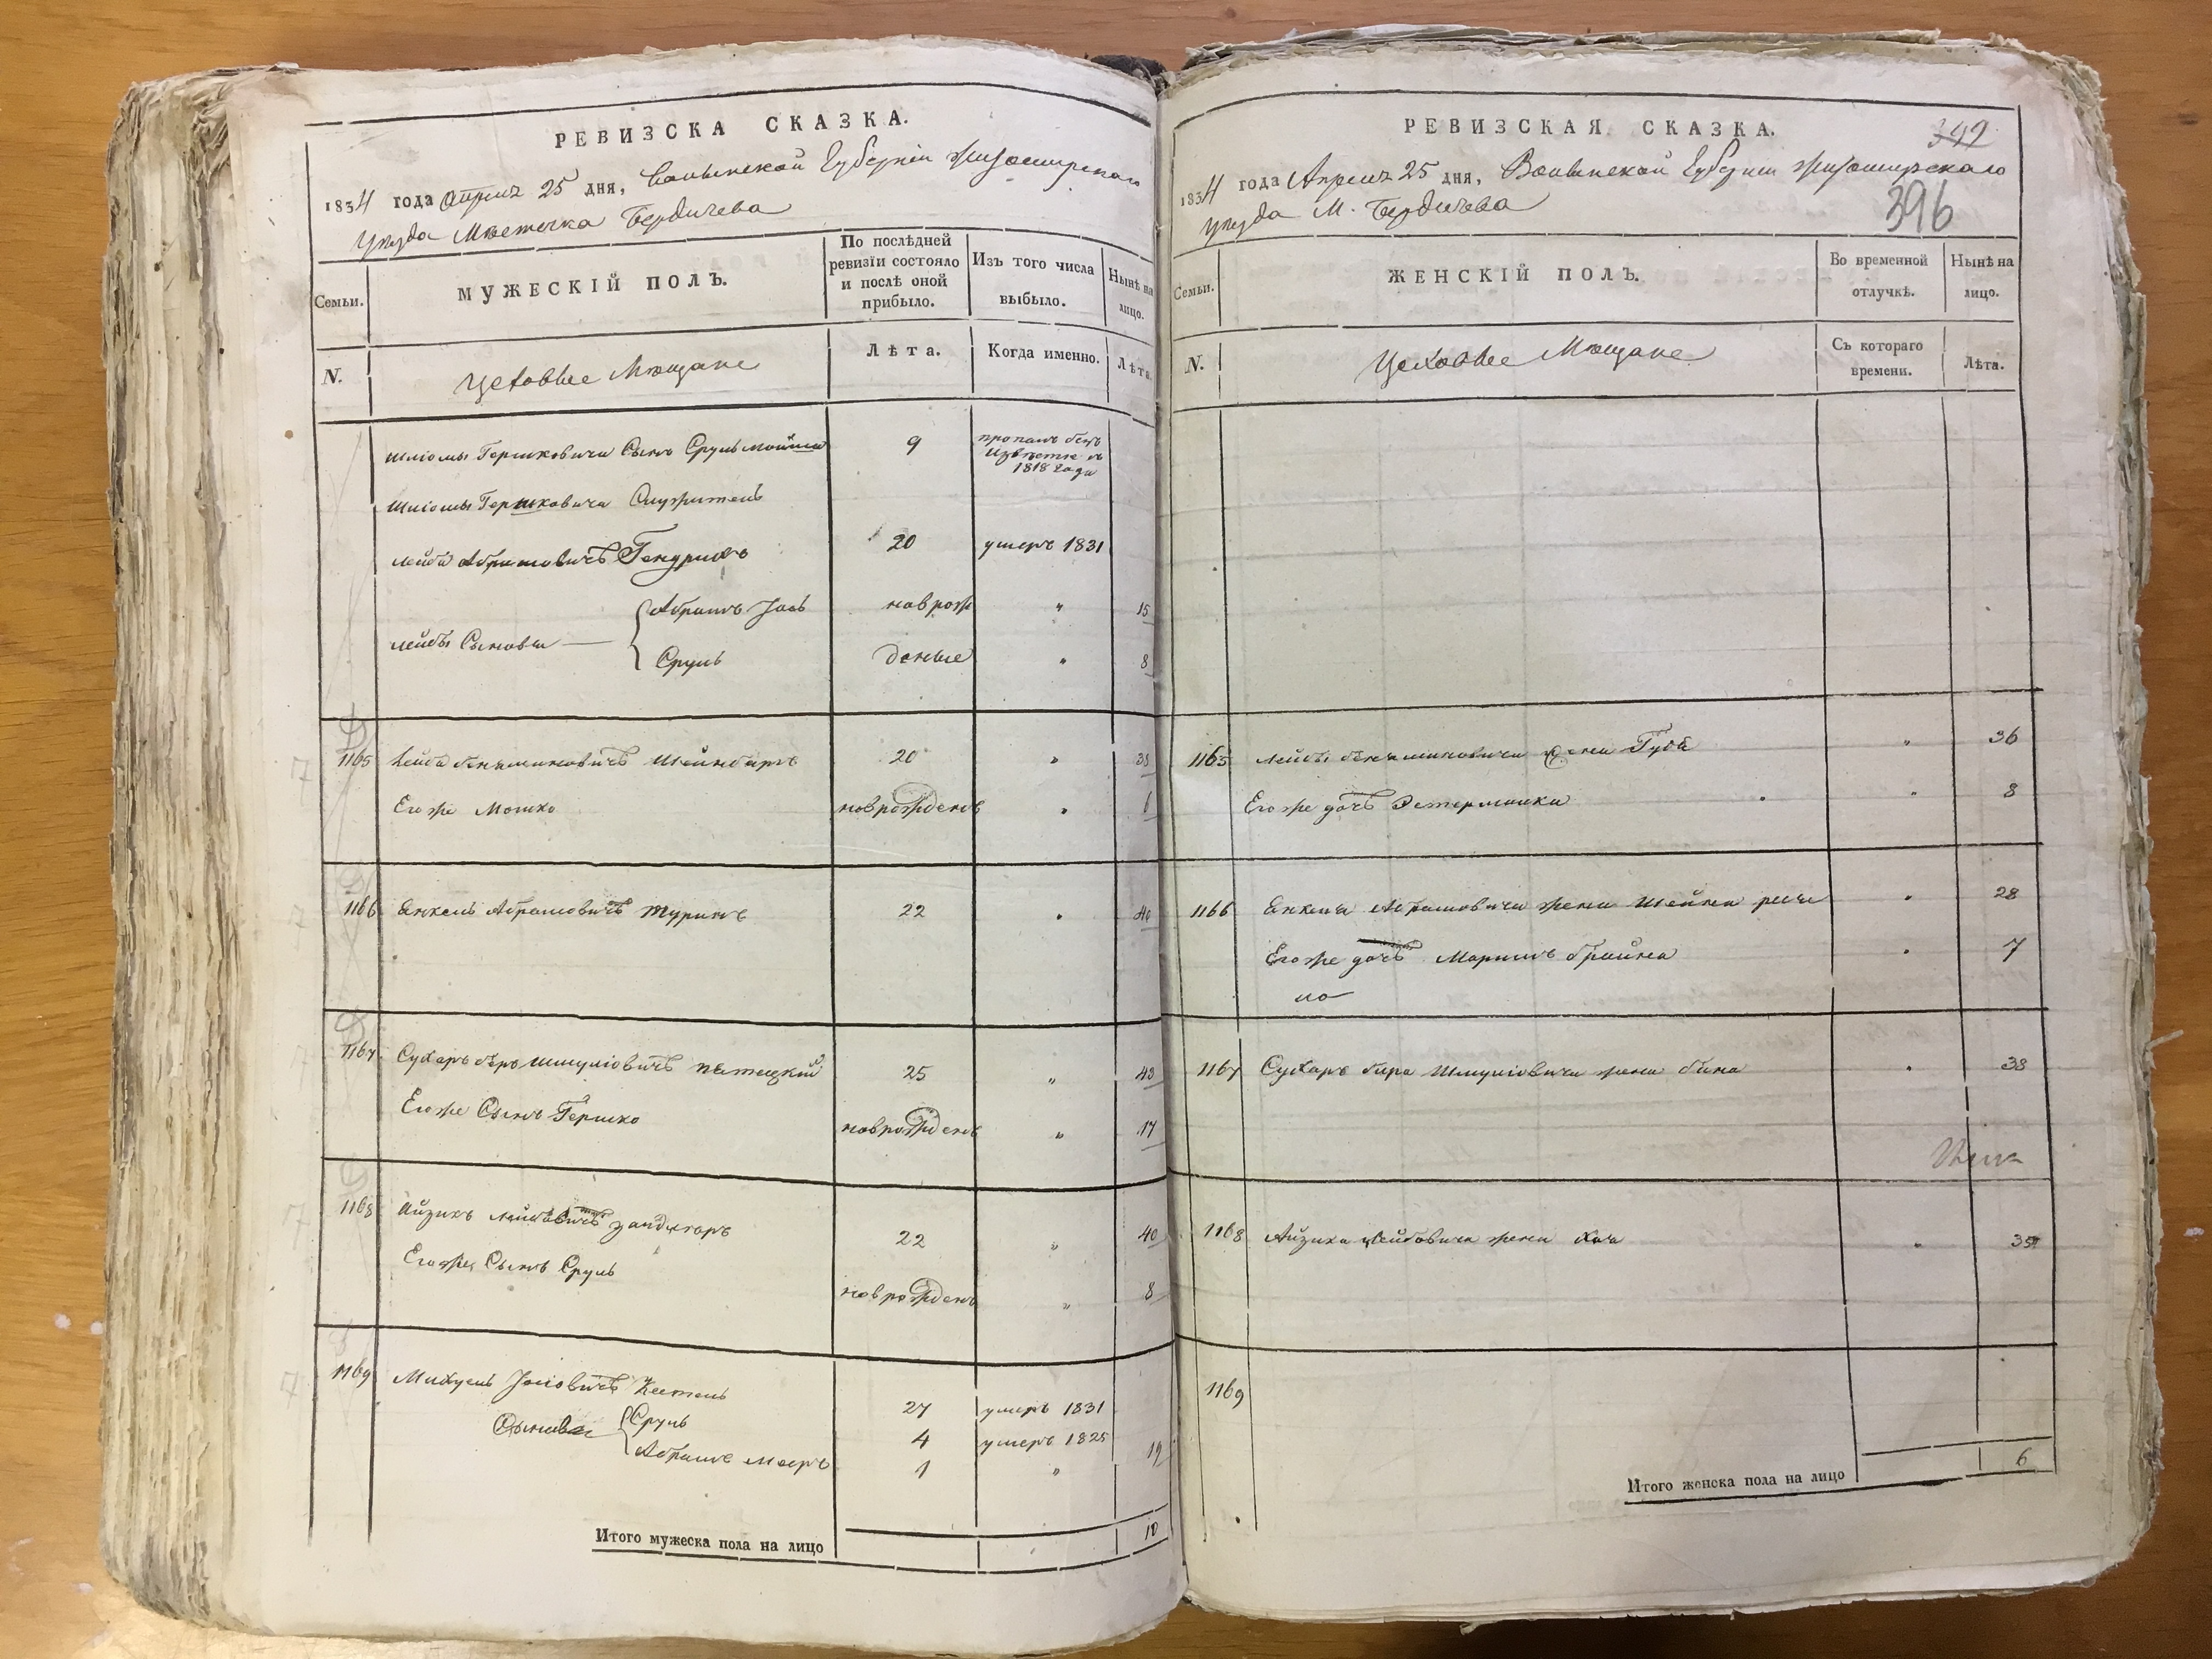 РЕВИЗСКА СКАЗКА.
1834 года Апреля 25 дня, Волынской Губернии Житомирскаго
уезда Местечка Бердичева
Семьи.
МУЖЕСКІЙ ПОЛЪ.
По послѣдней ревизіи состояло и послѣ оной прибыло.
Изъ того числа выбыло.
Нынѣ на лицо.
N.
Цеховые Мещане
Лѣта.
Когда именно.
Лѣта.
Шліомы Гершковича Сынъ Сруль Мойша 9 пропалъ безъ
1818 года
Шліомы Гершковича Служитель
Лейба Абрамовичъ 20 умеръ 1831
Лейбы Сыновья Абрамъ Іось новорож " 15
Сруль денные " 8
1165 Лейба Беньяминовичъ Шейнбаргъ 20 " 38
Его же Мошко новорожденъ " 1
1166 Енкель Абрамовичъ Туринъ 22 " 40
1167 Сухаръ Беръ Шмуліовичъ 25 " 43
Его же Сынъ Гершко новорожденъ " 17
1168 Айзикъ Лейбовичъ 22 " 40
Его же Сынъ Сруль новорожденъ " 8
1169 Михель Іосіовичъ 27 умеръ 1831
Сыновья Сруль 4 умеръ 1825
Абрамъ Мееръ 1 " 19
Итого мужеска пола на лицо 10
РЕВИЗСКАЯ СКАЗКА.
392
1834 года Апреля 25 дня, Волынской Губернии Житомирскаго
уезда М. Бердичева
396
Семьи.
ЖЕНСКІЙ ПОЛЪ.
Во временной отлучкѣ.
Нынѣ на лицо.
N.
Цеховые Мещане
Съ котораго времени.
Лѣта.
1165 Лейбы Беньяминовича жена " 36
Его же дочь Эстермалка " 8
1166 Енкеля Абрамовича жена Шейна " 28
Его же дочь " 7
1167 Сухаръ Бера Шмуліовича жена Бина " 38
1168 Айзика Лейбовича жена Хая " 35
1169
Итого женска пола на лицо 6